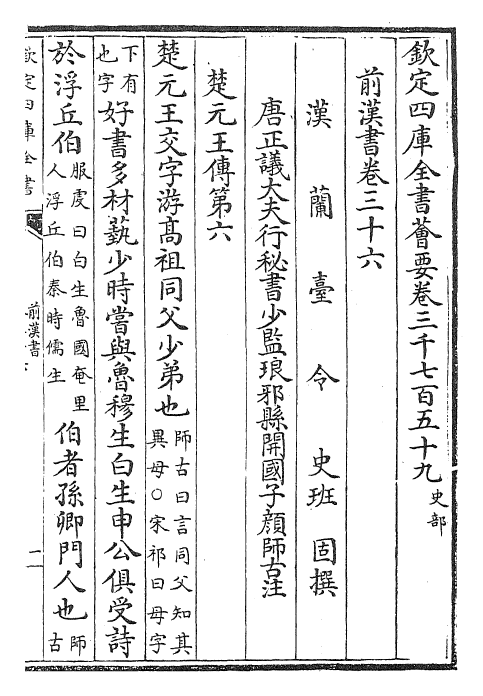 欽定四庫全書薈要卷三千七百五十九 史部
前漢書卷三十六
漢蘭臺令史班固撰
唐正議大夫行秘書少監琅邪縣開國子顏師古注
楚元王傳第六
楚元王交字游高祖同父少弟也 師古曰言同父知其異母○宋祁曰母字
下有也字 好書多材藝少時嘗與魯穆生白生申公俱受詩
於浮丘伯 服虔曰白生魯國奄里人浮丘伯秦時儒生 伯者孫卿門人也 師古
欽定四庫全書
前漢書